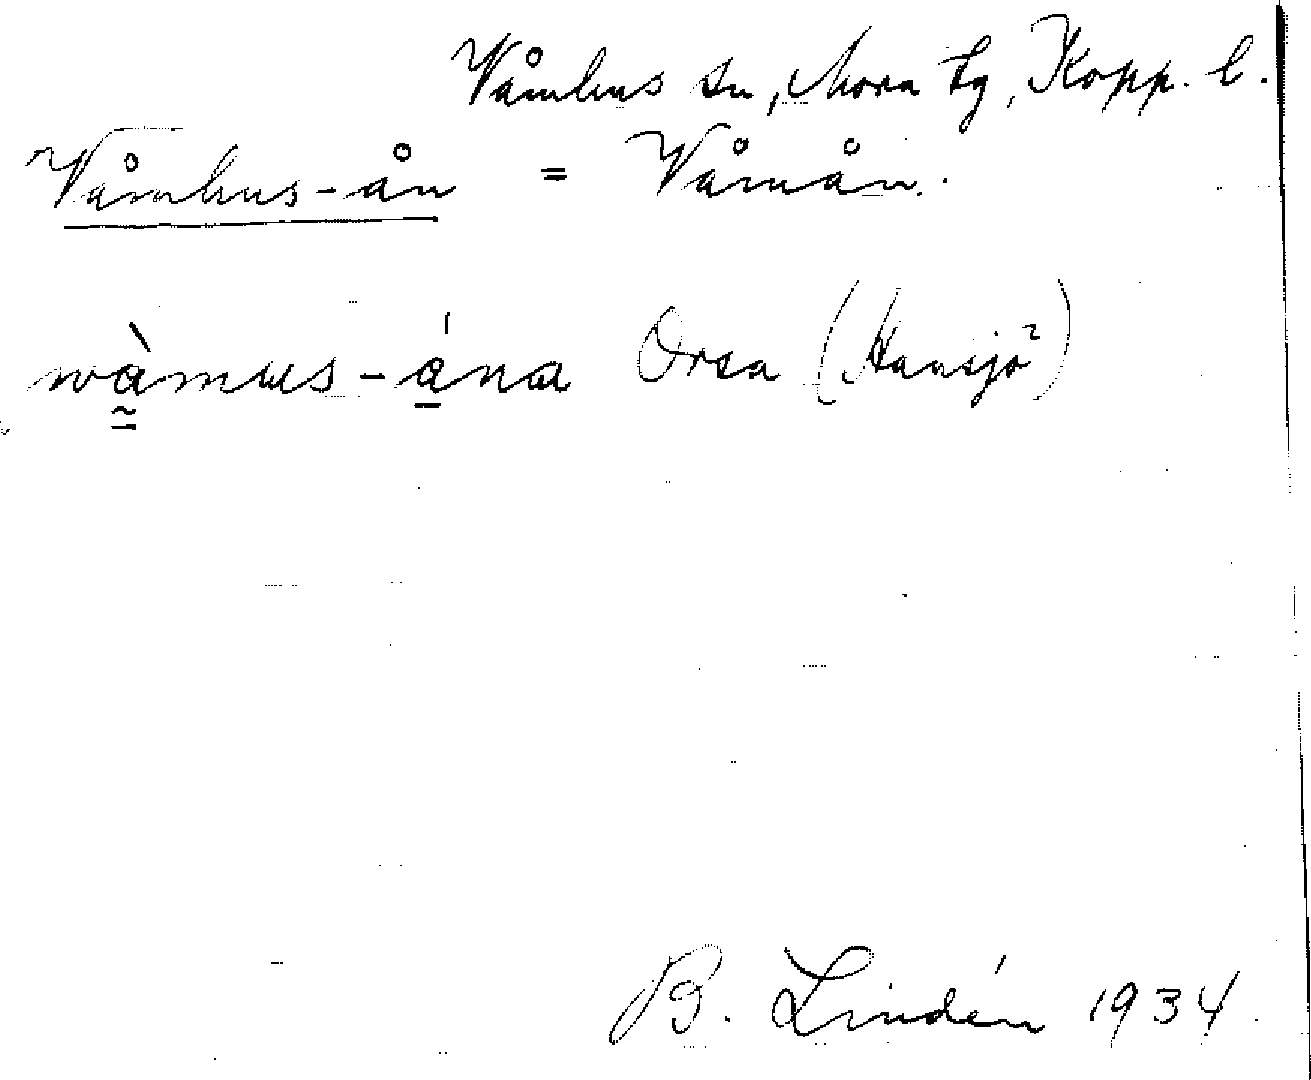 Våmhus sn, Mora tg, Kopp. l.
Våmhus-ån = Våmån.
wàmus-ána Orsa (Hansjö²)
B. Lindén 1934